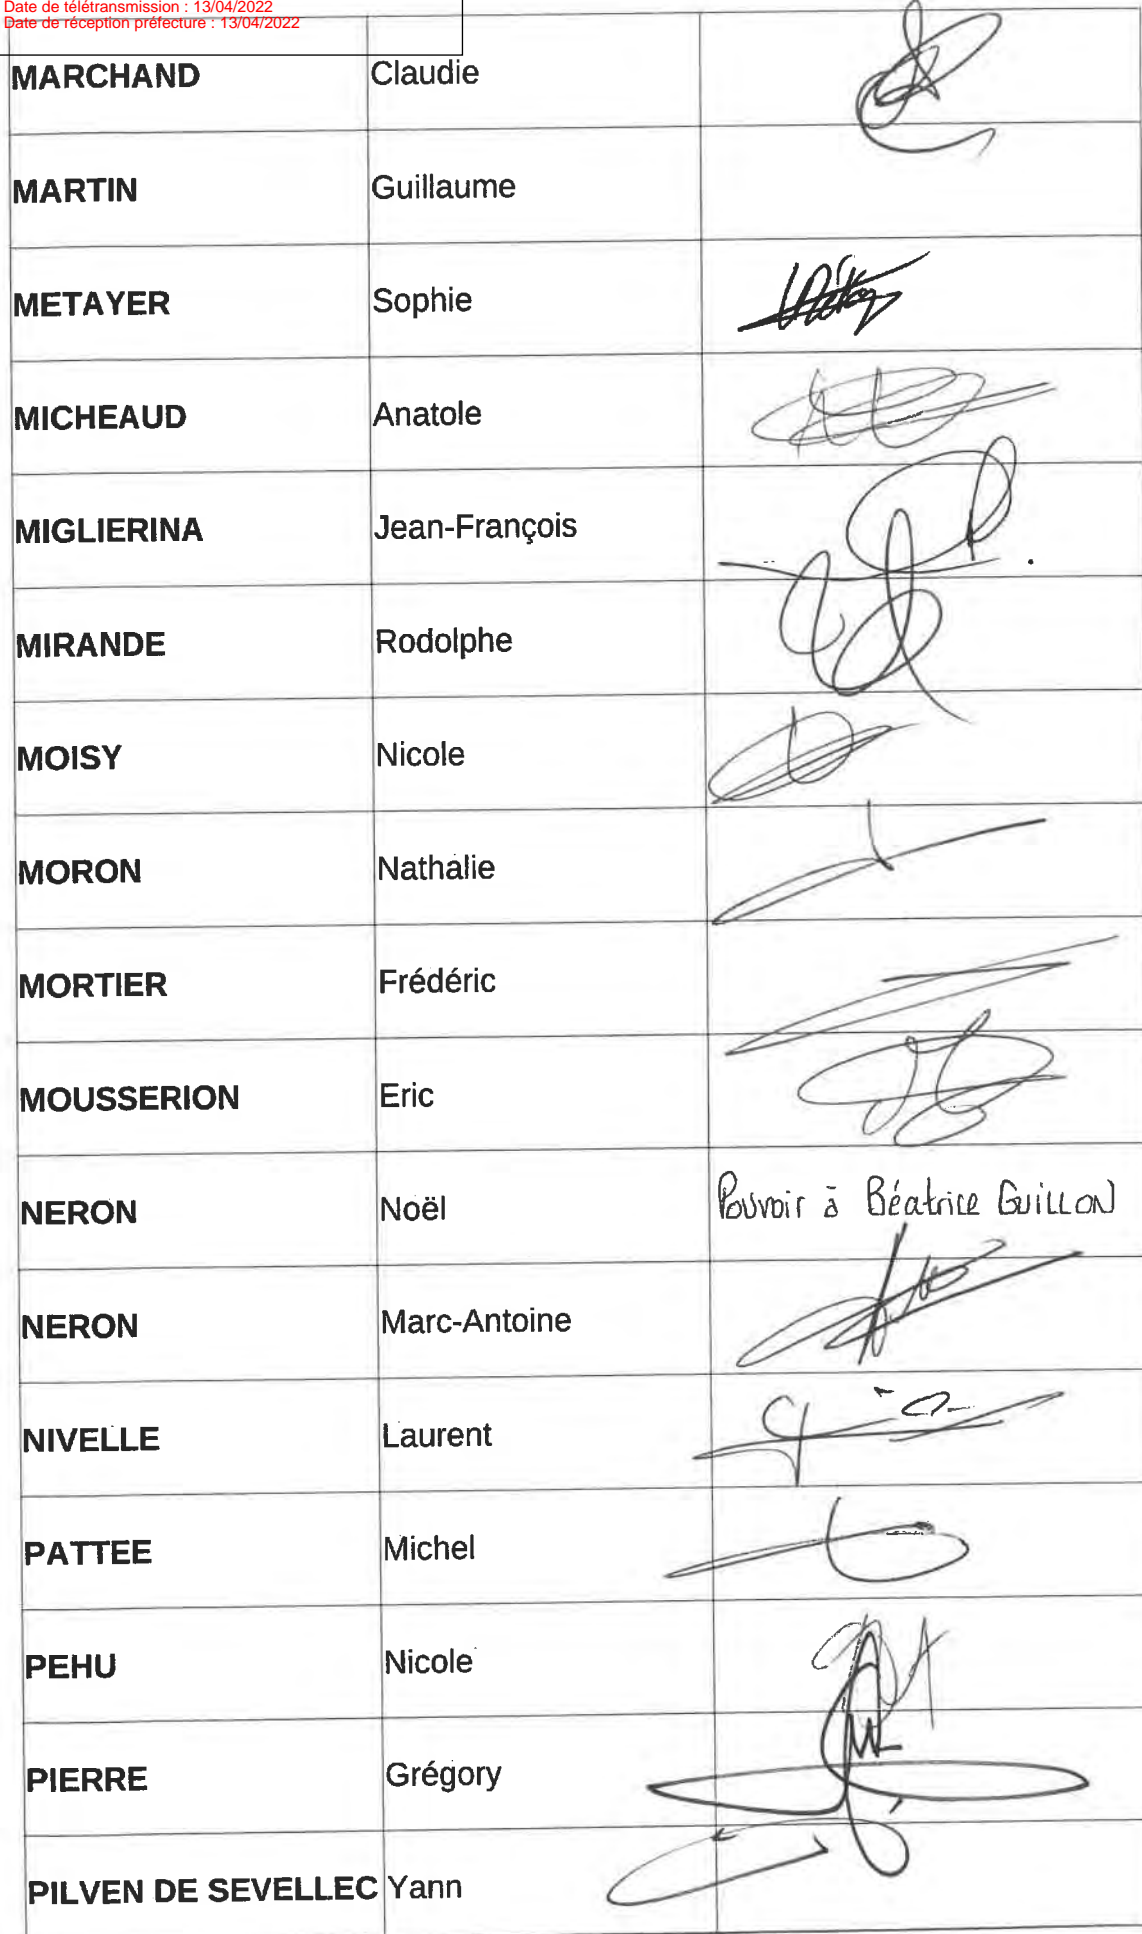 Date de télétransmission : 13/04/2022
Date de réception préfecture : 13/04/2022
MARCHAND Claudie
MARTIN Guillaume
METAYER Sophie
MICHEAUD Anatole
MIGLIERINA Jean-François
MIRANDE Rodolphe
MOISY Nicole
MORON Nathalie
MORTIER Frédéric
MOUSSERION Eric
NERON Noël Pouvoir à Béatrice GUILLON
NERON Marc-Antoine
NIVELLE Laurent
PATTEE Michel
PEHU Nicole
PIERRE Grégory
PILVEN DE SEVELLEC Yann